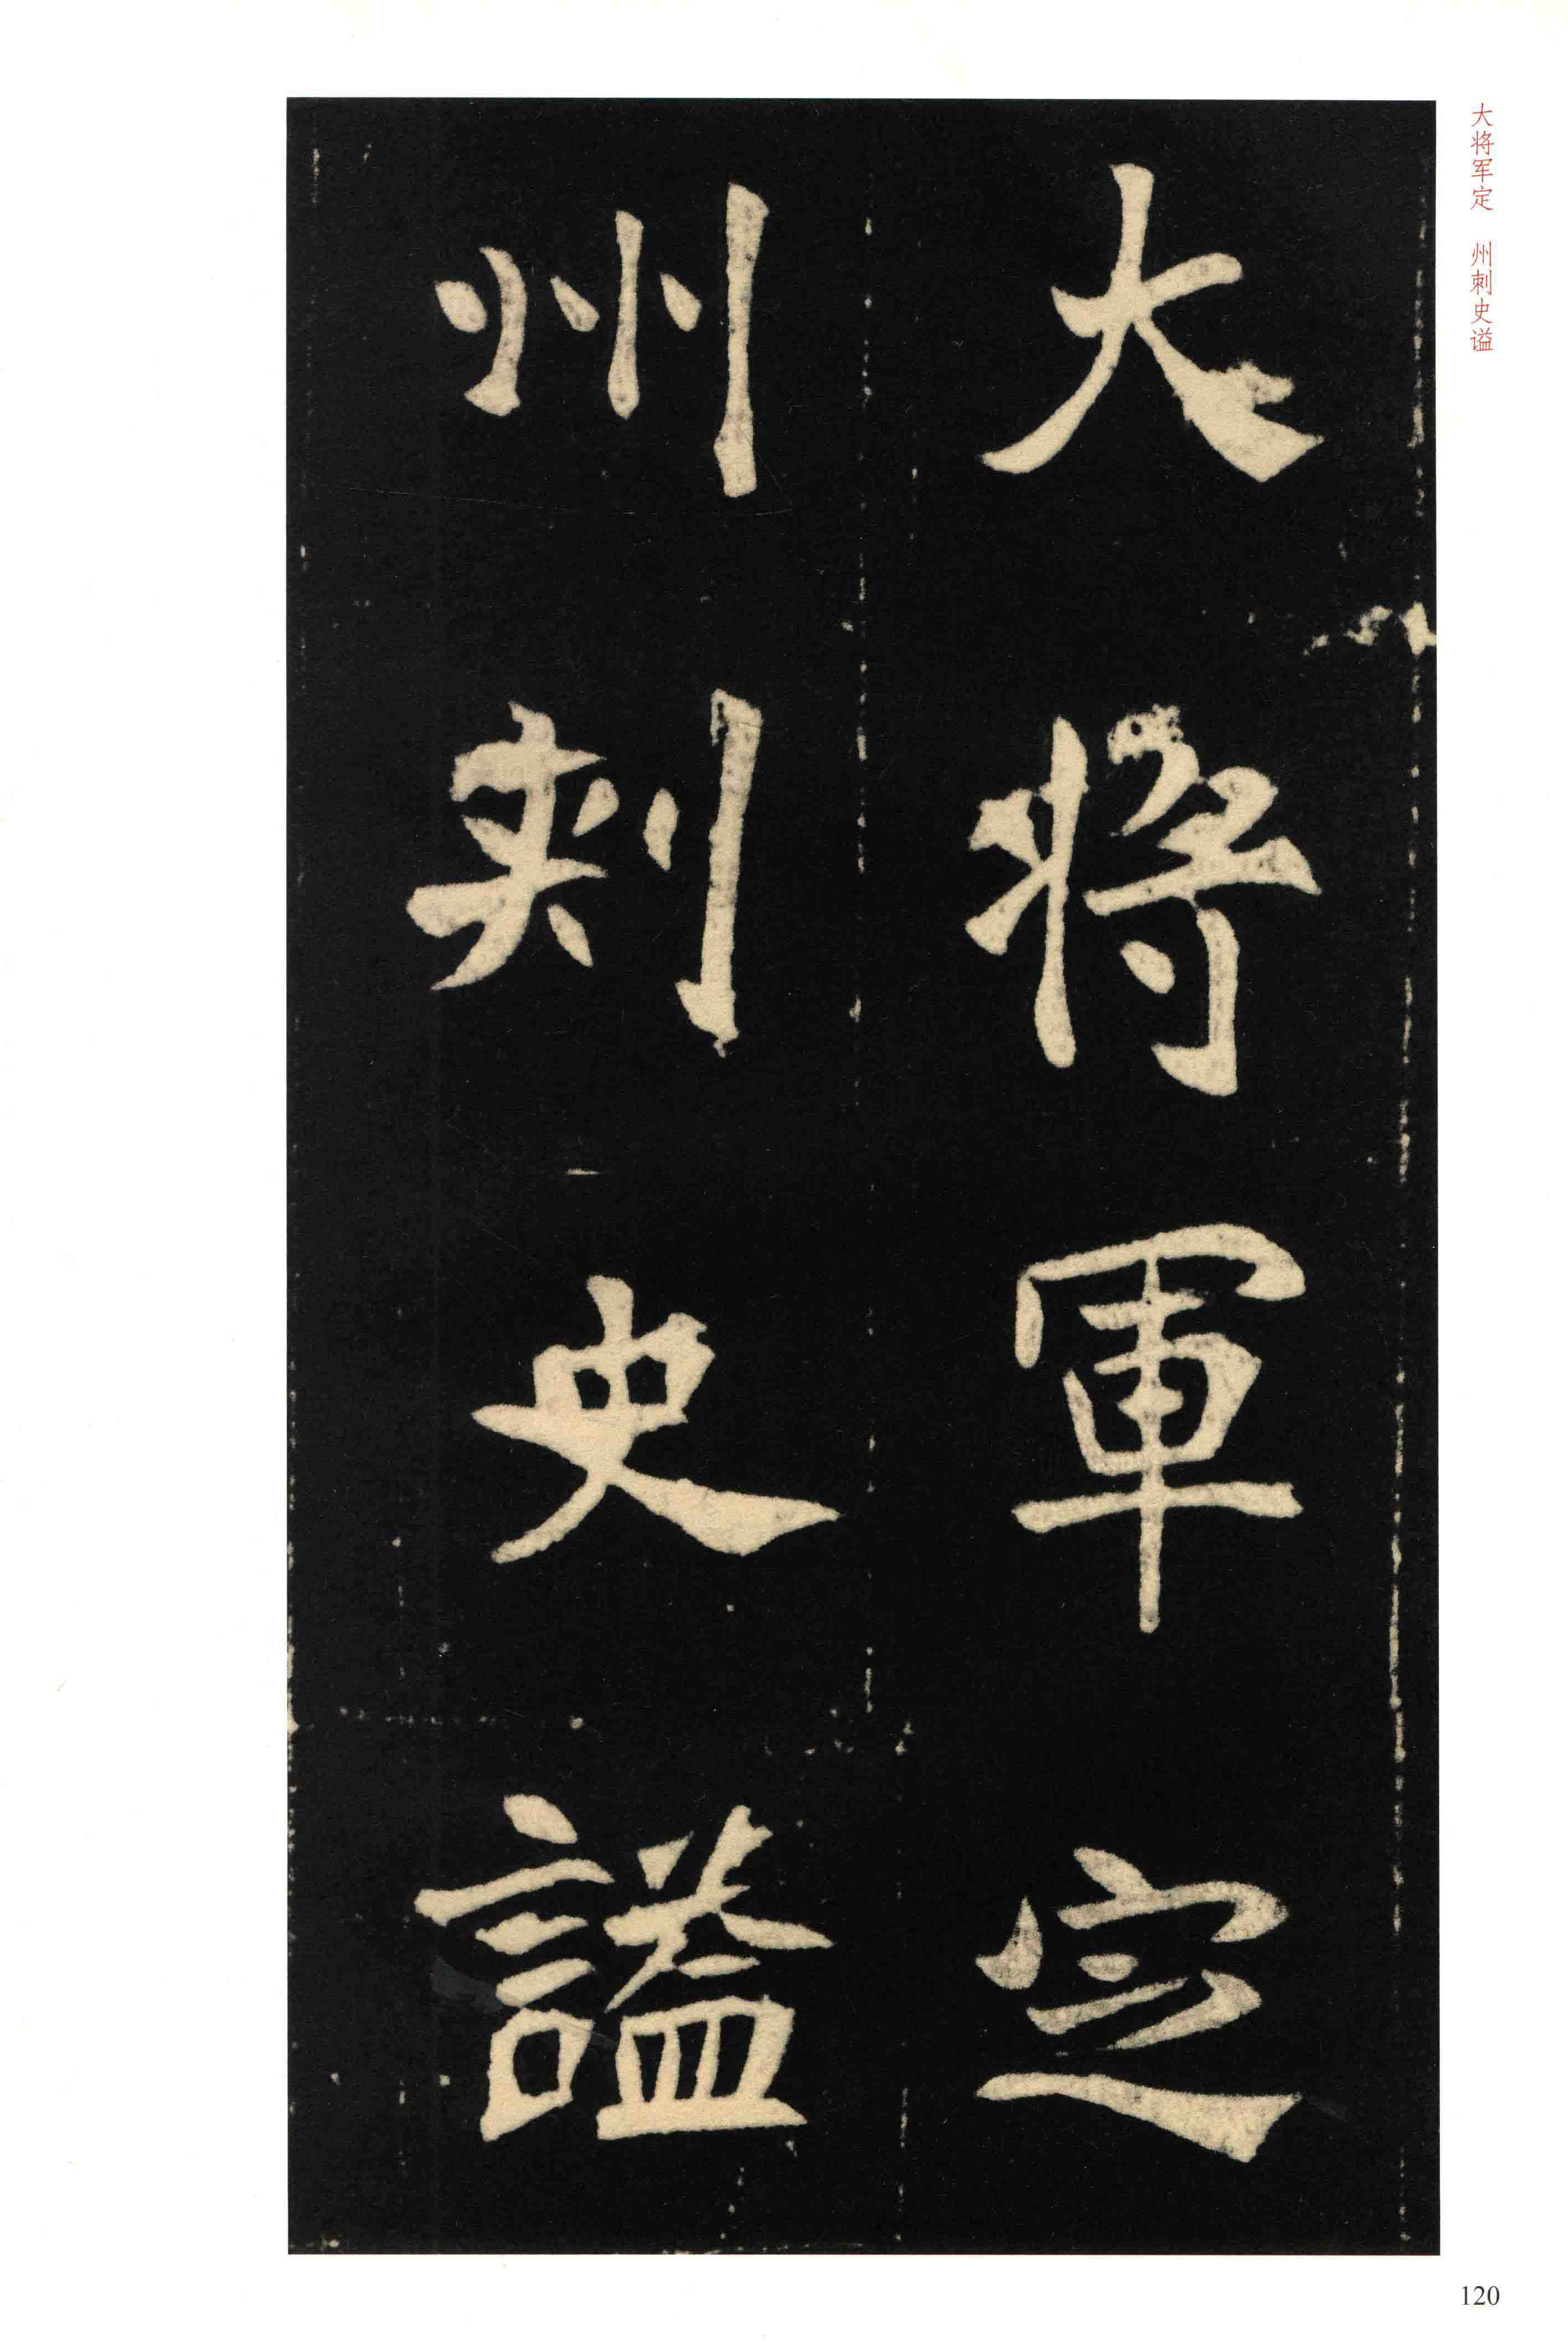 大将军定 州刺史谥
大將軍定
州刺史謚
120